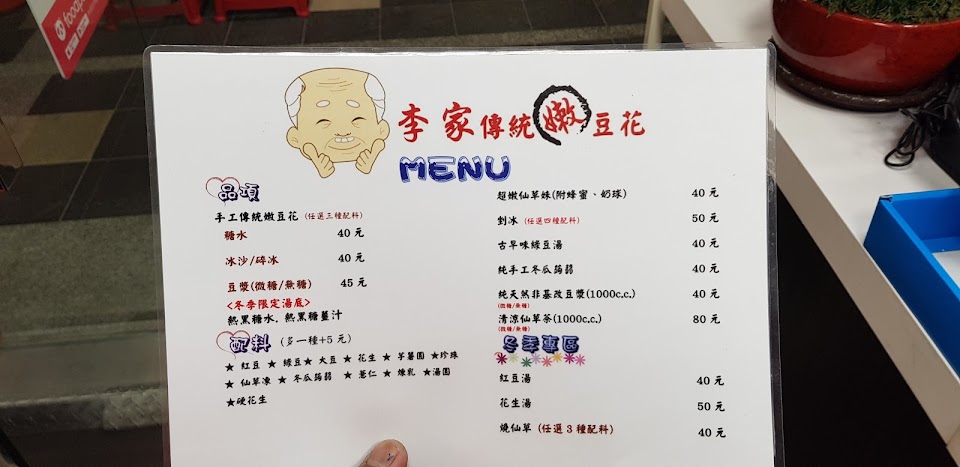 foodp
李家傳統嫩豆花
MENU
品項
手工傳統嫩豆花 (任選三種配料)
糖水 40 元
冰沙/碎冰 40 元
豆漿(微糖/無糖) 45 元
<冬季限定湯底>
熱黑糖水, 熱黑糖薑汁
配料 (多一種+5 元)
★ 紅豆 ★ 綠豆 ★ 大豆 ★ 花生 ★ 芋薯圓 ★珍珠
★ 仙草凍 ★ 冬瓜蒟蒻 ★ 薏仁 ★ 煉乳 ★湯圓
★硬花生
超嫩仙草妹(附蜂蜜、奶球) 40 元
剉冰 (任選四種配料) 50 元
古早味綠豆湯 40 元
純手工冬瓜蒟蒻 40 元
純天然非基改豆漿(1000c.c.) 40 元
(微糖/無糖)
清涼仙草茶(1000c.c.) 80 元
(微糖/無糖)
冬季專區
紅豆湯 40 元
花生湯 50 元
燒仙草 (任選 3 種配料) 40 元